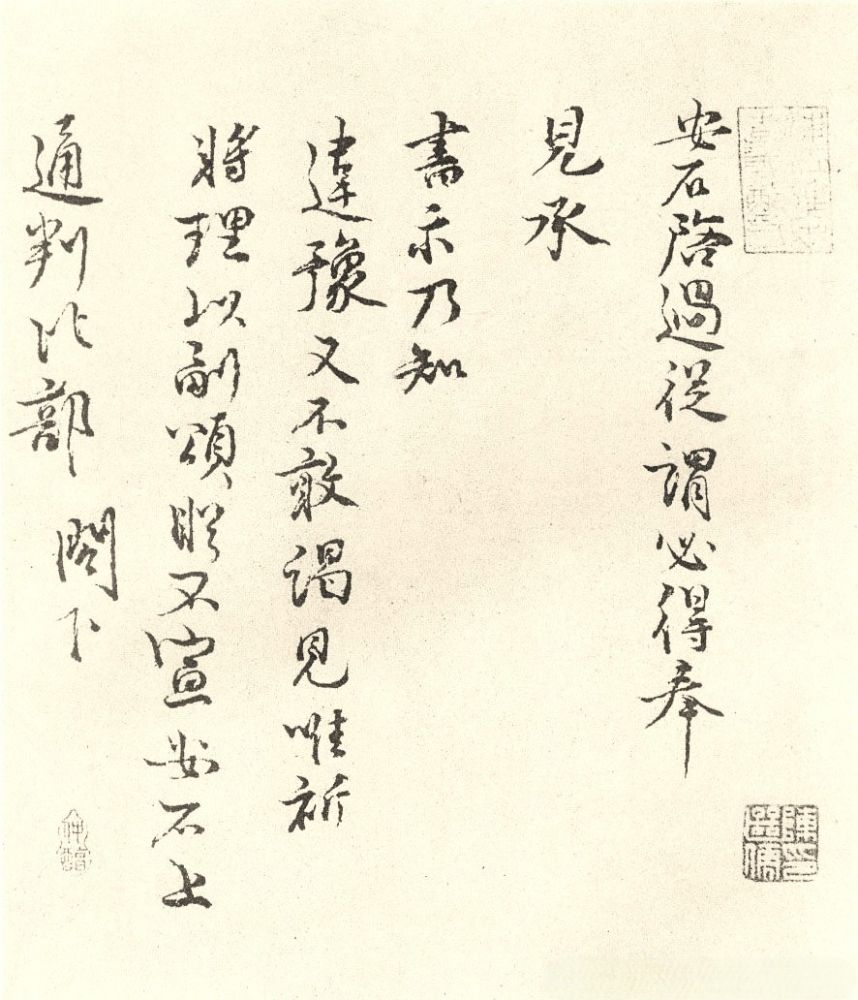 安石啓過從謂必得奉
見承
書示乃知
違豫又不敢謁見唯祈
將理以副頌詠不宣安石上
通判比部 閤下